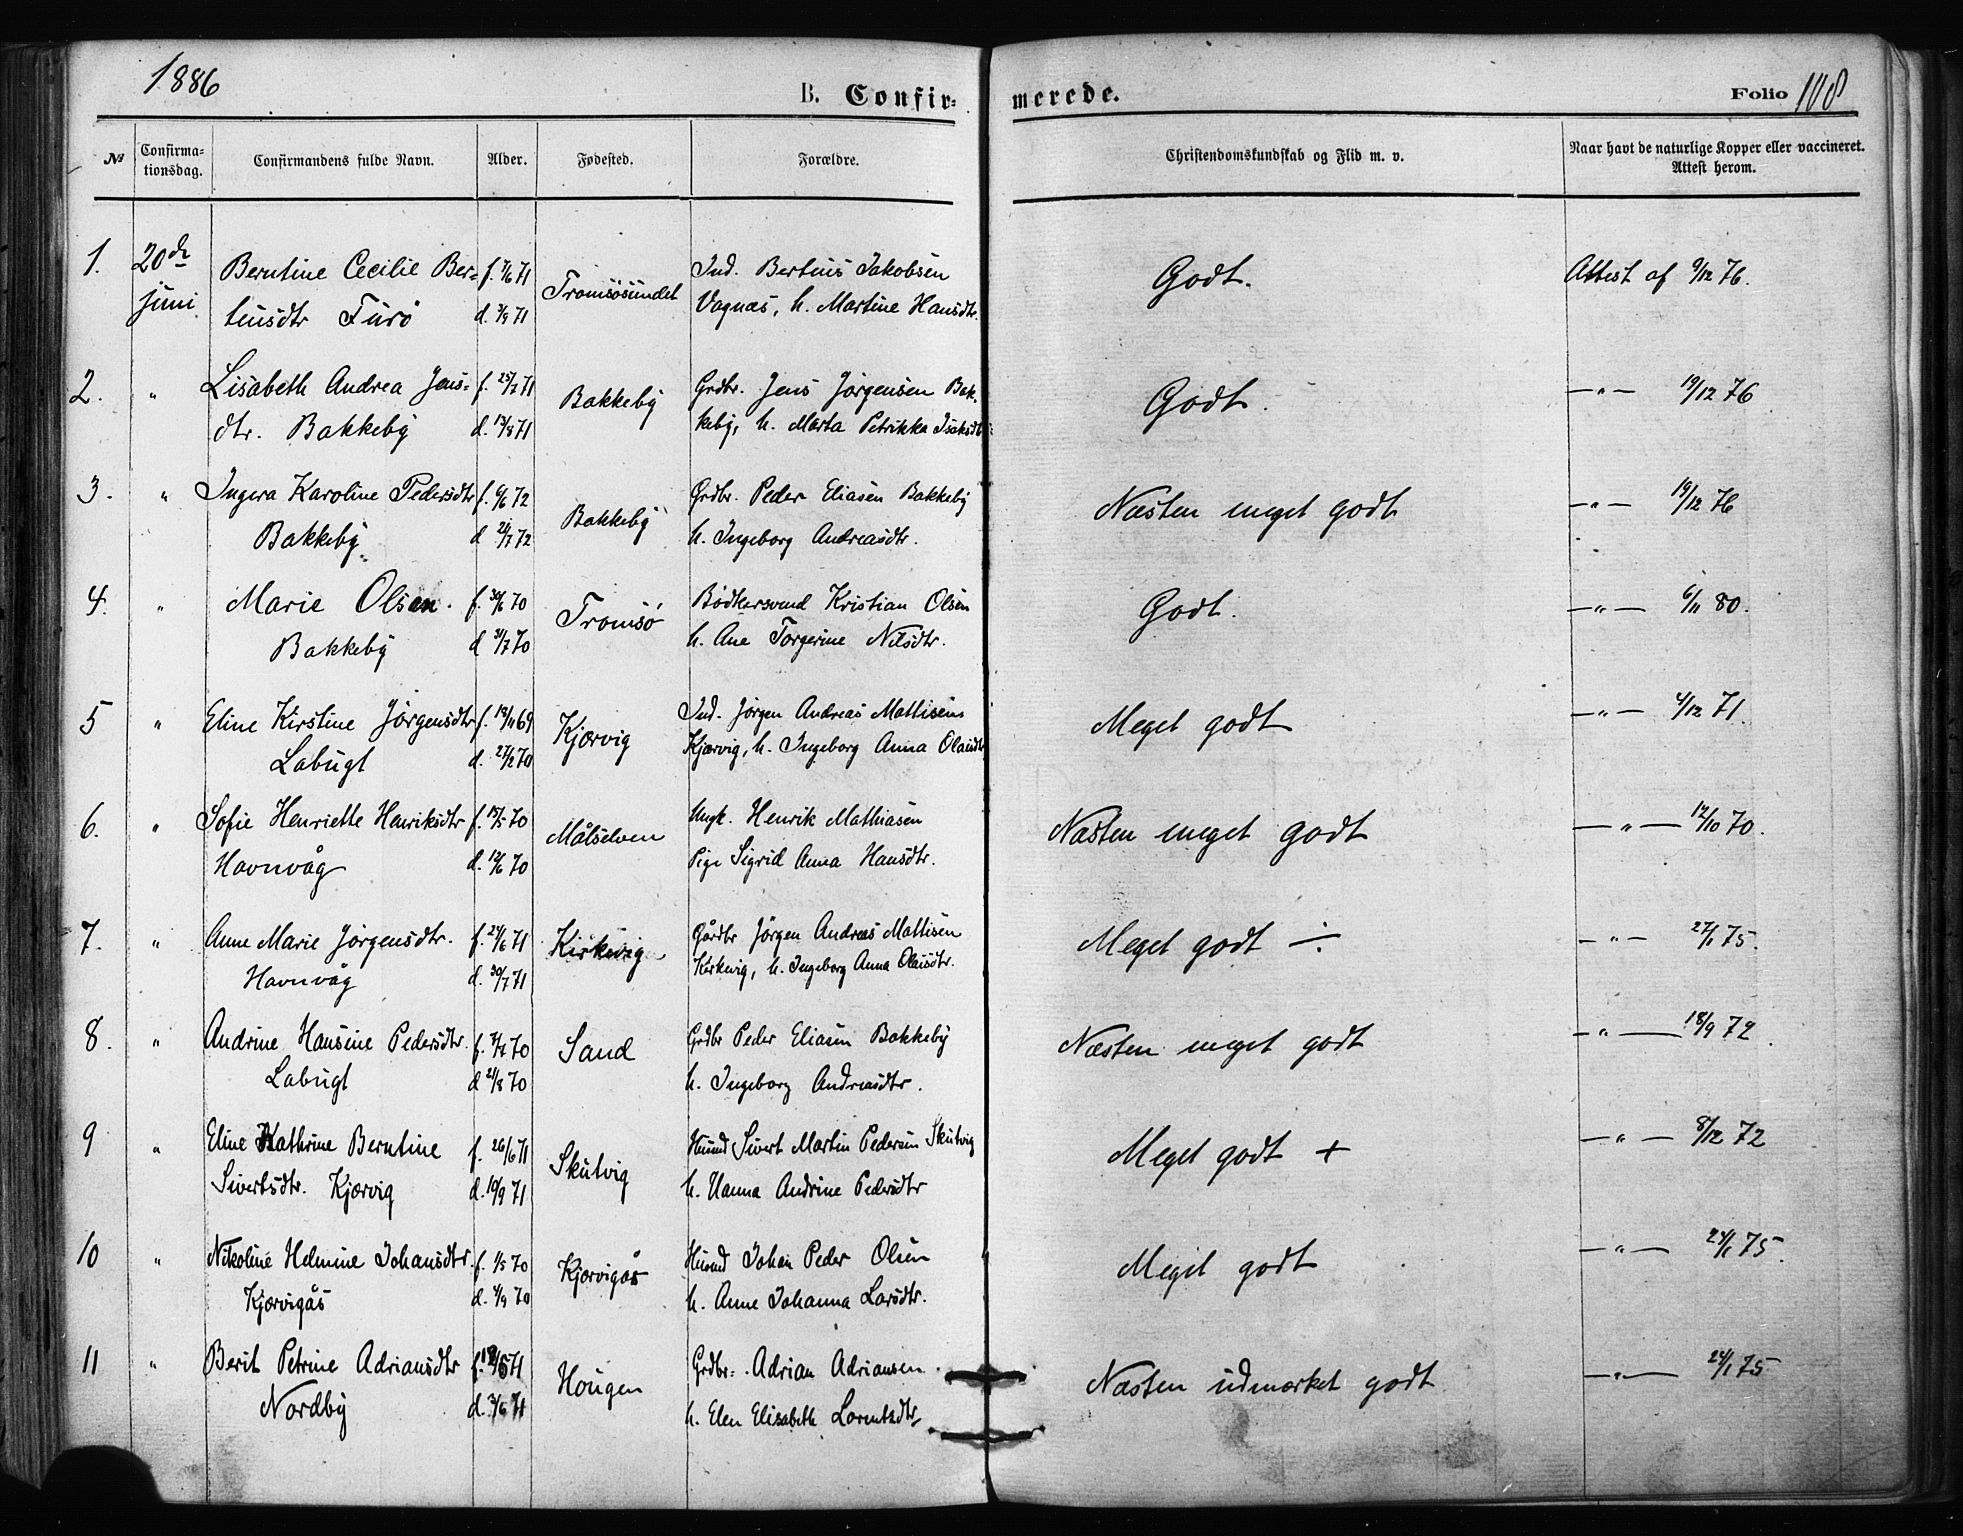 1886 B. Confir= merede. Folio 108
№ Confirma= tionsdag. Confirmandens fulde Navn. Alder. Fødested. Forældre. Christendomskundskab og Flid m. v. Naar havt de naturlige Kopper eller vaccineret. Attest herom.
1. 20de Berntine Cecilie Ber= f. 71 Tromsösundet Ind. Bertius Jakobsen Godt. Attest af 9/12 76.
juni tiusdtr Furö d. 3/9 71 Vagnæs, h. Martine Hansdtr.
2. " Lisabeth Andrea Jens= f. 25/7 71 Bakkeby Grdbr. Jens Jörgensen Bak. Godt. —"— 19/12 76
dtr. Bakkeby d. 13/8 71 keby, h. Marta Petrikka Isaksdtr
3. " Ingera Karoline Pedersdtr f. 6/6 72 Bakkeby Grdbr. Peder Eliasen Bakkeby Næsten meget godt —"— 19/12 76
Bakkeby d 21/7 72 h. Ingeborg Andreasdtr.
4. " Marie Olsen. f. 30/6 70 Tromsö Bödkersvend Kristian Olsen Godt. —"— 6/11 80.
Bakkeby d 31/7 70 h. Ane Torgerine Nilsdtr.
5 " Eline Kirstine Jörgensdtr f. 13/11 69 Kjærvig Ind. Jörgen Andreas Mattisens Meget godt —"— 4/12 71.
Labugt d. 27/2 70 Kjærvig, h. Ingeborg Anna Olaisdtr
6. " Sofie Henriette Henriksdtr f. 15/5 70 Målselven Ungk. Henrik Mathiasen Næsten meget godt —"— 12/10 70.
Havnvåg d. 12/6 70 Pige Sigrid Anna Hansdtr.
7. " Anne Marie Jörgensdtr. f. 24/6 71 Kirkevig Gårdbr Jörgen Andreas Mattisen Meget godt ÷ —"— 27/1 75.
Havnvåg d. 30/7 71 Kirkevig, h. Ingeborg Anna Olaisdtr.
8. " Andrine Hansine Pedersdtr. f. 70 Sand Grdbr Peder Eliasen Bakkeby Næsten meget godt —"— 18/9 72.
Labugt d 21/8 70 h. Ingeborg Andreasdtr.
9 " Eline Kathrine Berntine f. 26/6 71 Skutvig Husmd Sivert Martin Pedersen Skutvig Meget godt + —"— 8/12 72
Sivertsdtr. Kjærvig d. 10/9 71 h. Hanna Andrine Pedersdtr
10 " Nikoline Helmine Johansdtr. f. 1/5 70 Kjærvigås Husmd Johan Peder Olsen Meget godt —"— 24/1 75.
Kjærvigås d. 4/9 70 h. Anne Johanna Larsdtr.
11 " Berit Petrine Adriansdtr f. 71 Hougen Grdbr. Adrian Adriansen Næsten udmærket godt —"— 24/1 75
Nordby d. 71 h. Elen Elisabeth Lorentsdtr